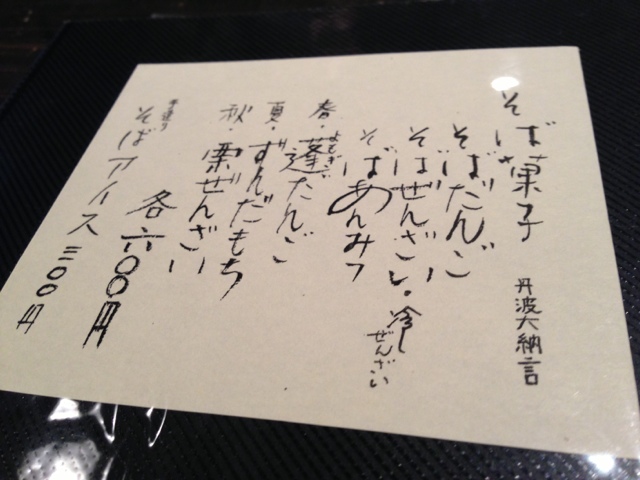 そば菓子 丹波大納言
そばだんご
そばぜんざい・冷しぜんざい
そばあんみつ
春・蓬だんご
よもぎ
夏・ずんだもち
秋・栗ぜんざい
各六〇〇円
手造り
そばアイス 三〇〇円